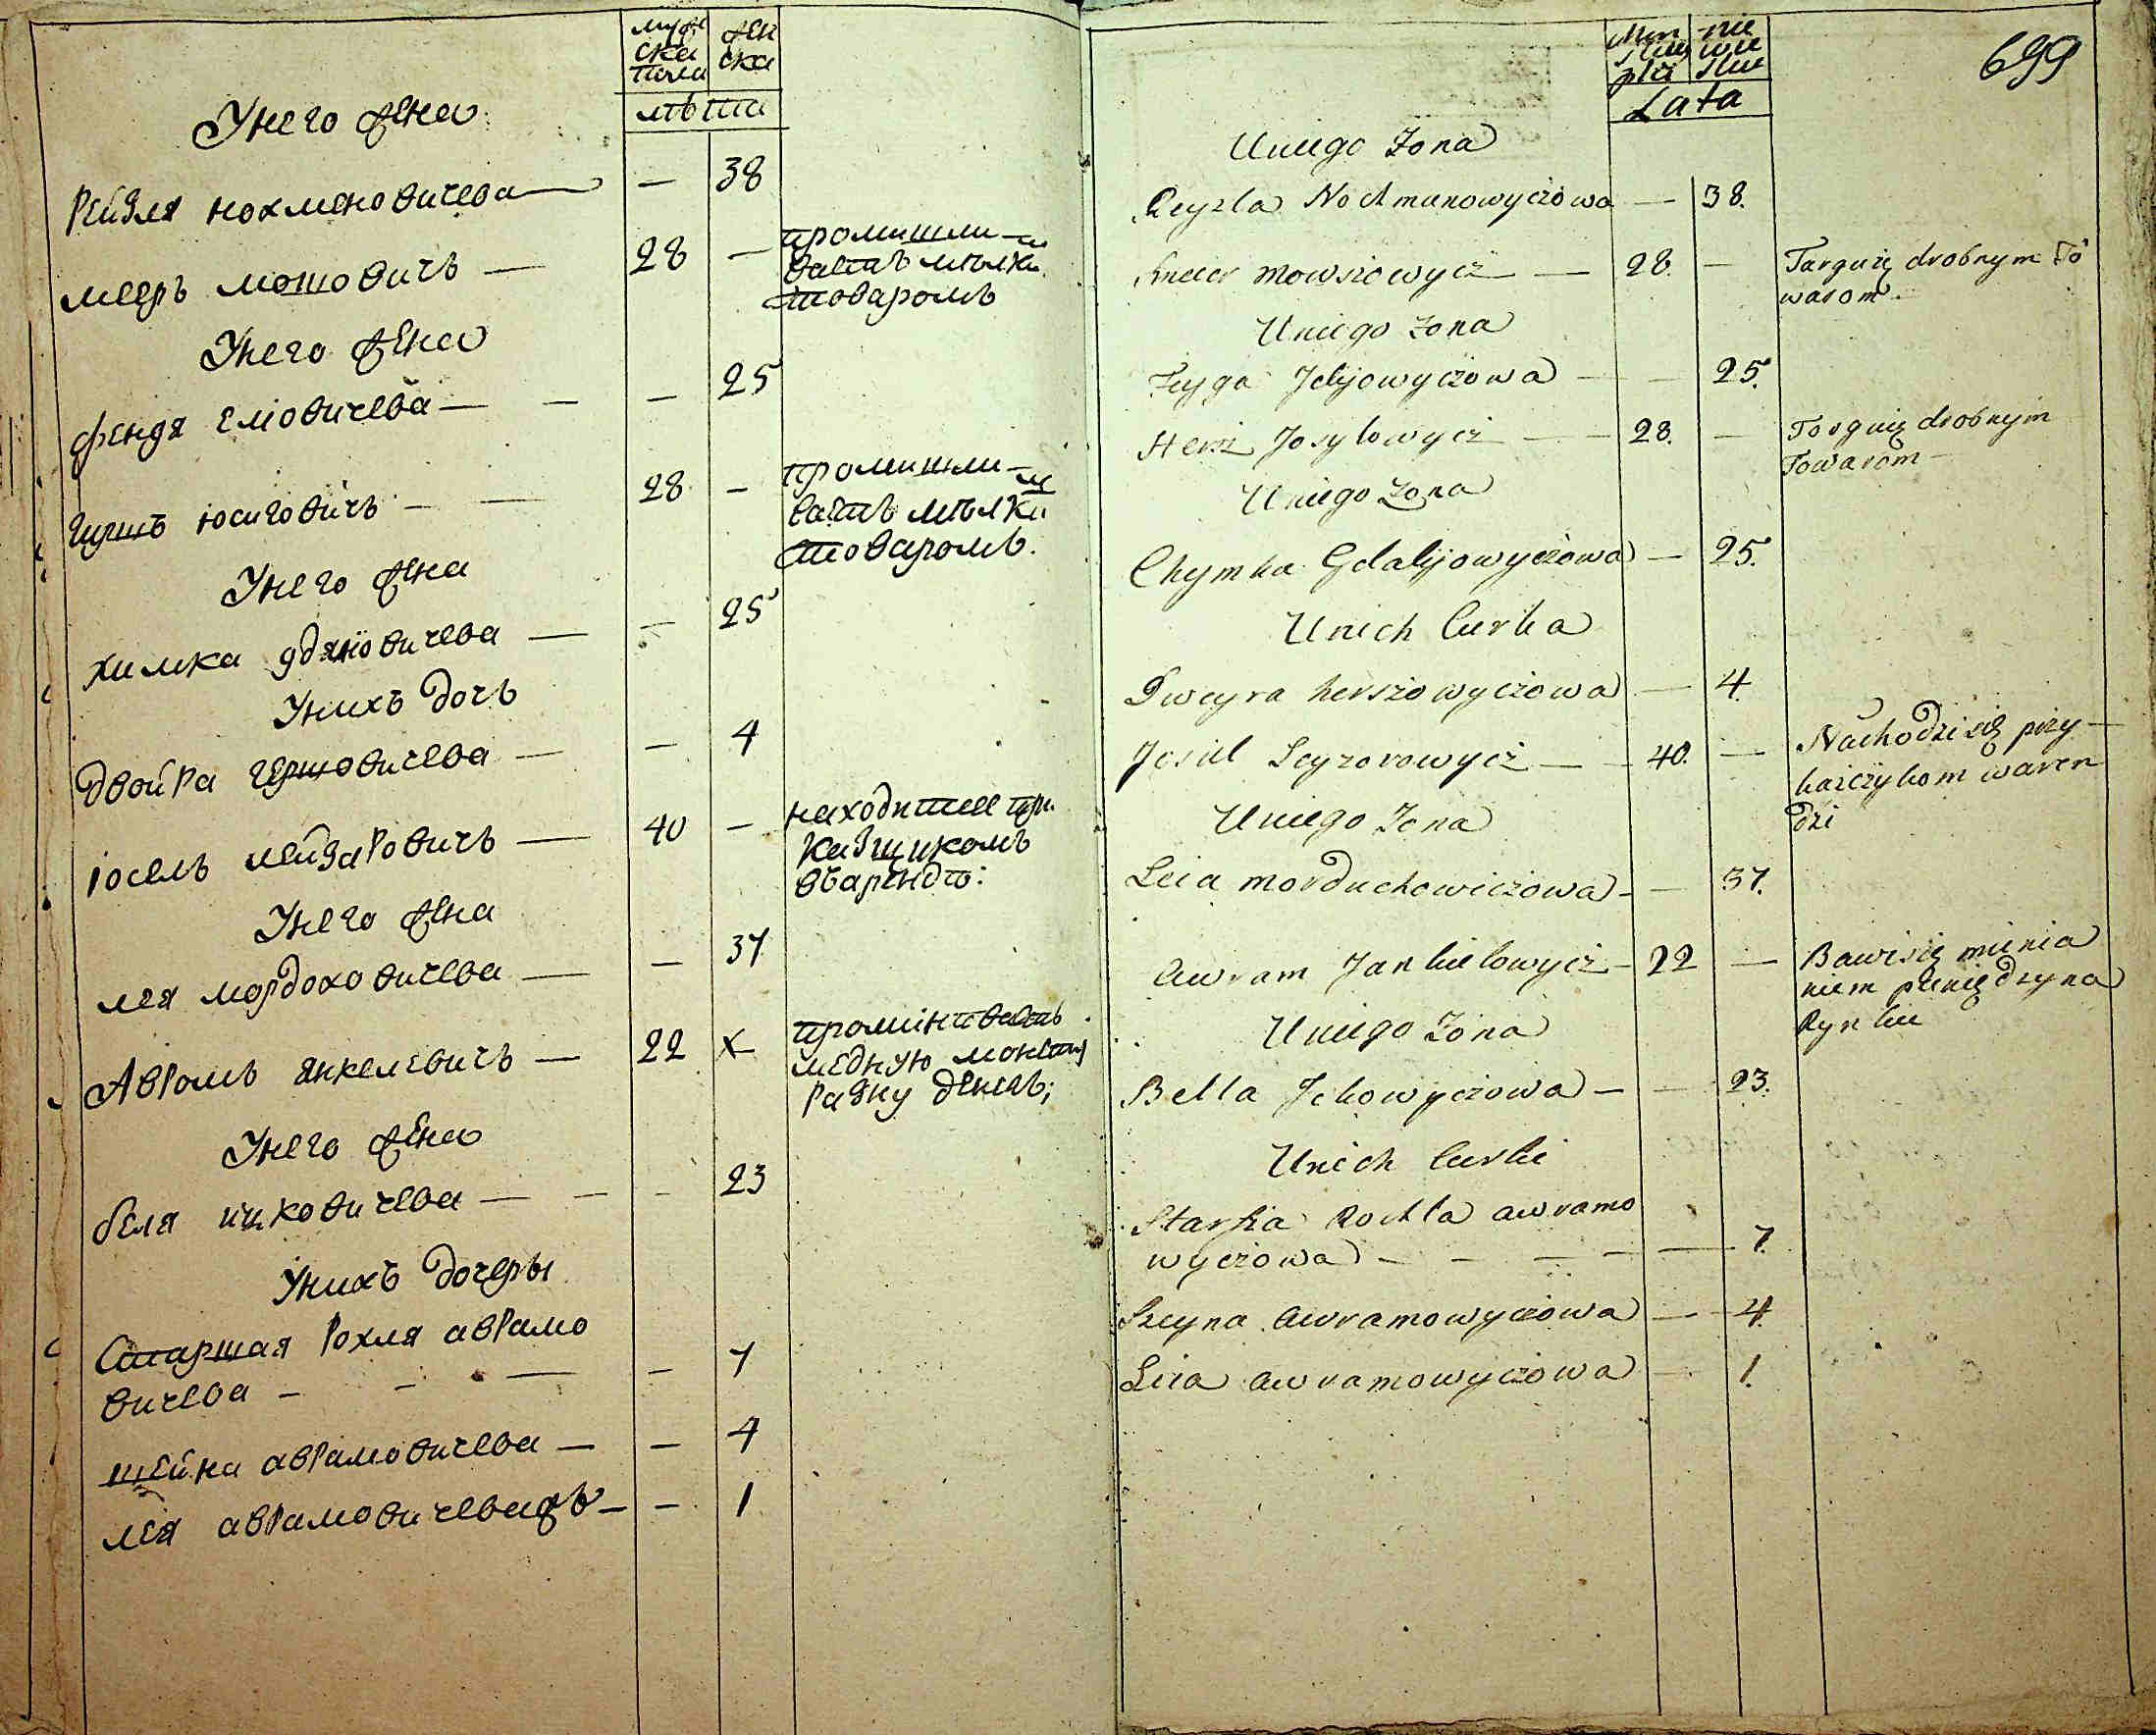 муж
ска
пола
жен
ска
лѣта
У него жена
Рейзля нохменовичева — — 38
меерь мошовичь — 28 — промишли-
ваеть мѣлки
товаромъ
У него жена
фейдя елiовичева — — — 25
гершъ юсиговичъ — — 28 — промишли-
ваеть мѣлки
товаромъ.
У него жена
химка гдалiовичева — — 25
У нихъ дочь
двойра гершовичева — — 4
іосель лейзаровичъ — 40 — находитсе при-
кащикомъ
въ арендѣ:
У него жена
лея мордоховичева — — 37
Аврамъ янкелевичъ — 22 x промінюваеть
медную монету
на рынку денегъ;
У него жена
беля ицковичева — — — 23
У нихъ дочеры
Старшая Рохля аврамо
вичева — — — — 7
шейна аврамовичева — — 4
лея аврамовичева — — 1
699
Lata
Uniego Żona
Reyzla Nochmanowyczowa — 38.
Meer Mowszowycz — 28. — Targuię drobnym To
warom
Uniego Żona
Feyga Jelijowyczowa — — 25.
Hersz Josylowycz — — 28. — Torguię drobnym
Towarom —
Uniego Żona
Chymka Gdalijowyczowa — 25.
Unich Curka
Dweyra herszowyczowa — 4.
Josiel Leyzorowycz — — 40. — Nachodzi się przy-
kaszczykom waren
dzi
Uniego Żona
Leia morduchowiczowa — — 37.
Awram Jankielowycz — 22 — Bawi się mienia
niem pieniędzy na
Rynku
Uniego Żona
Bella Ickowyczowa — — 23.
Unich Curki
Starsza Rochla awramo
wyczowa — — — — 7.
Szeyna Awramowyczowa — 4.
Leia awramowyczowa — 1.